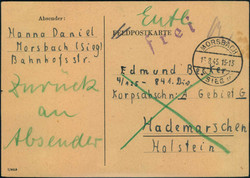 Absender:
Hanna Daniel
Morsbach (Sieg)
Bahnhofsstr.
Zurück
an
Absender
FELDPOSTKARTE
frei
MORSBACH
(SIEG)
Edmund
Korpsabschn. Gebiet G
Hademarschen
Holstein